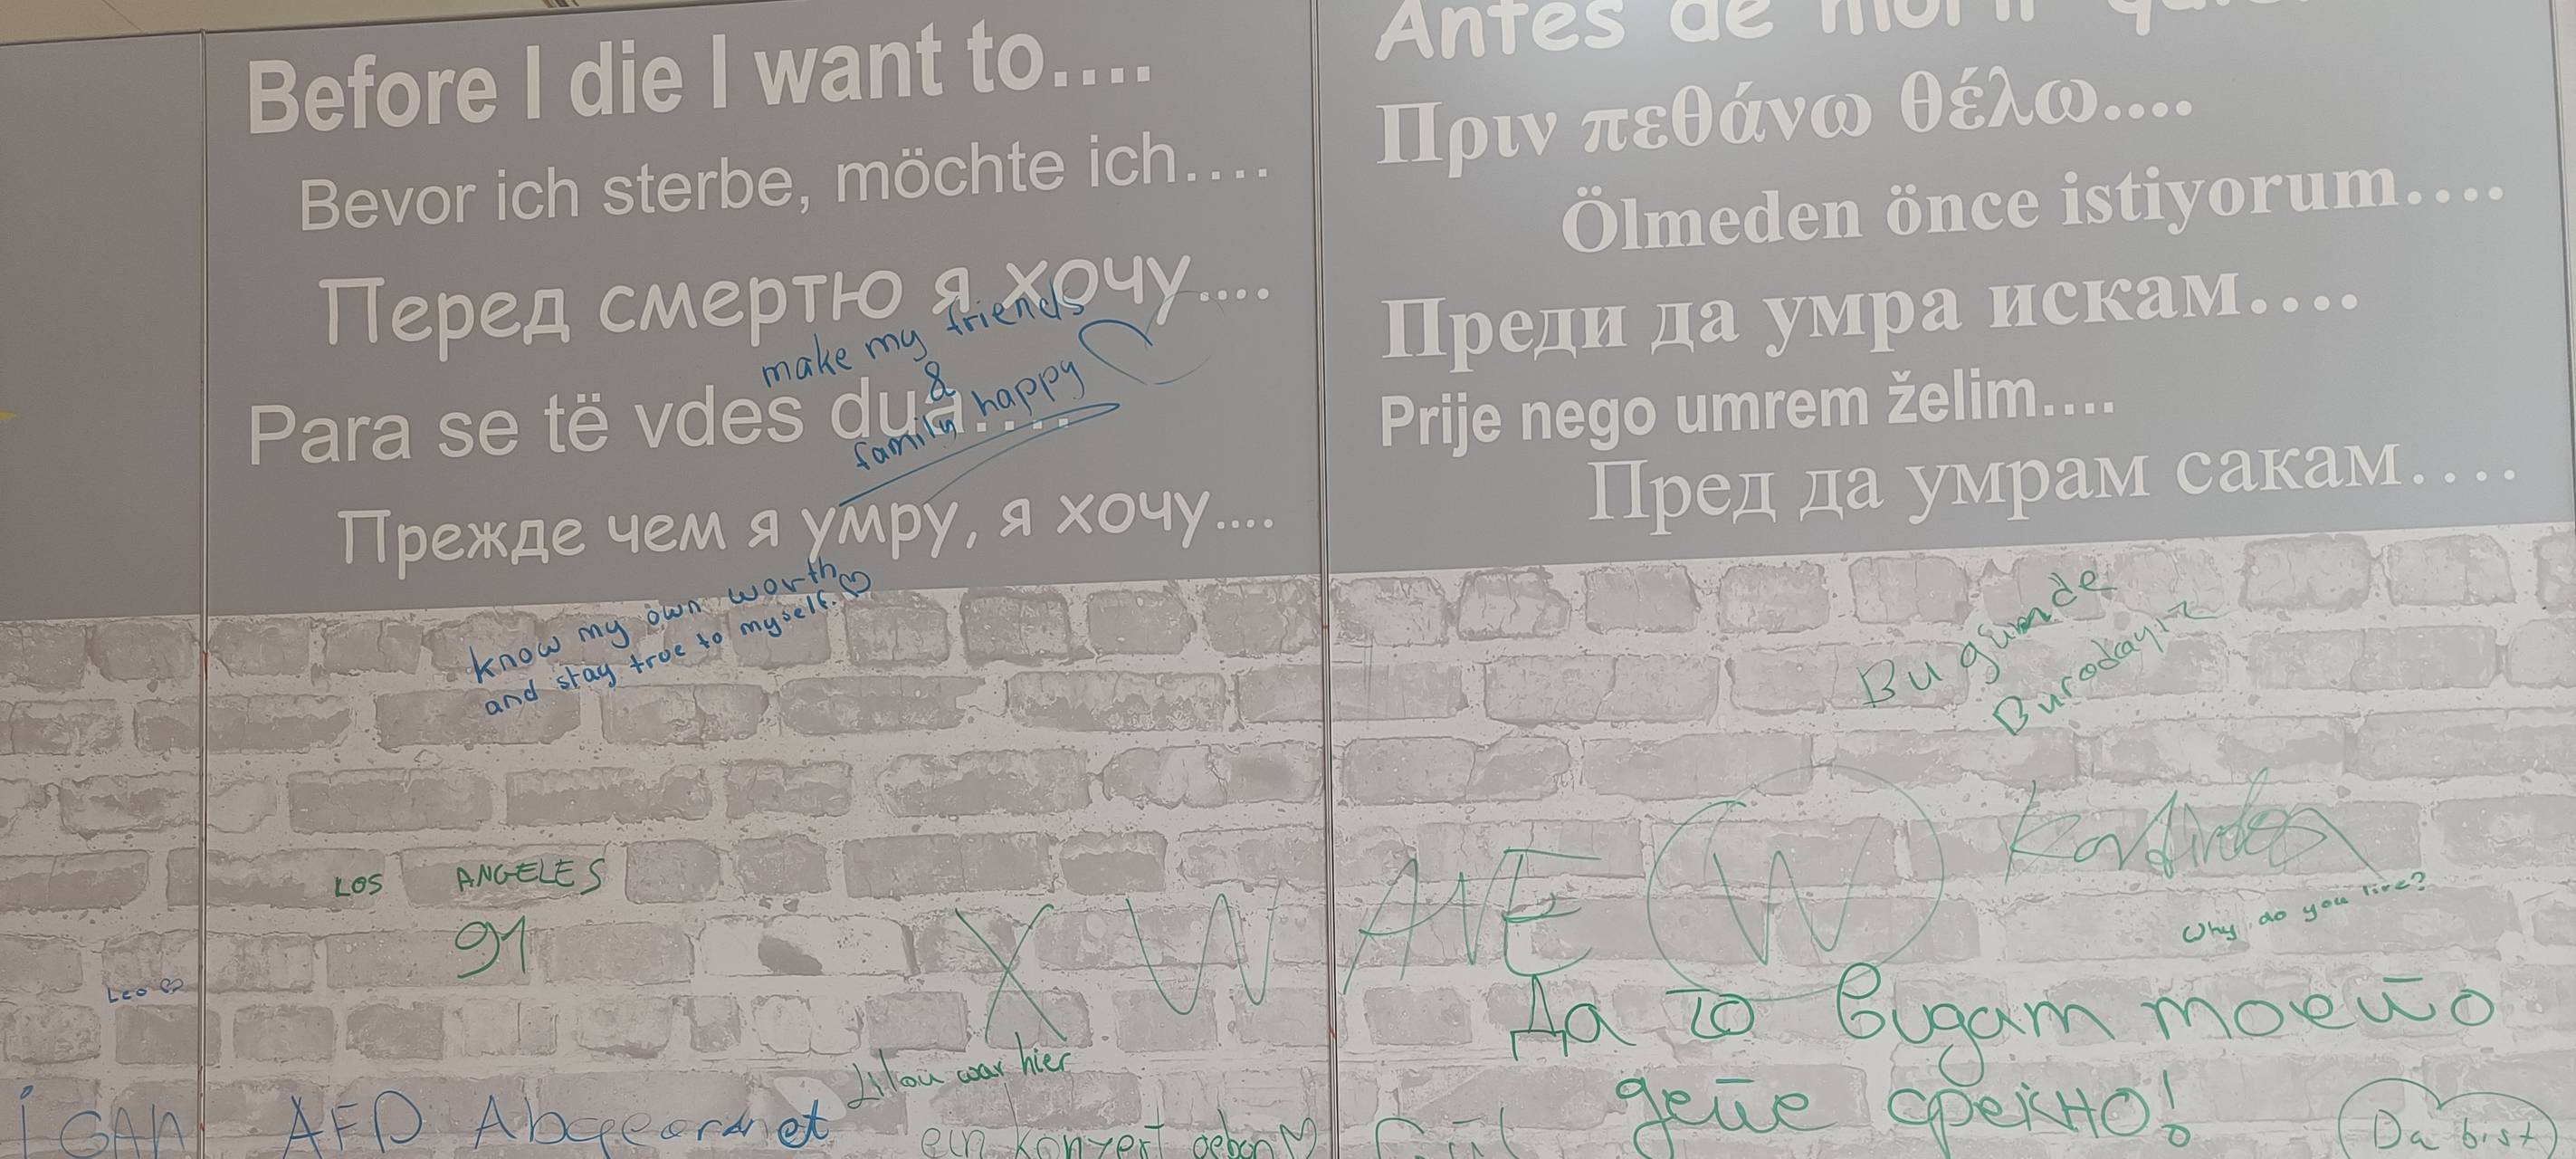 Before I die I want to....
Bevor ich sterbe, möchte ich....
Перед смертю я хочу....
make my friends
&
family happy
Para se të vdes dua....
Прежде чем я умру, я хочу....
know my own worth
and stay true to myself.
LOS ANGELES
91
Leo
X W
Lilou war hier
AFD Abgeordnet
ein Konzert geben
Antes de morir
Πριν πεθάνω θέλω....
Ölmeden önce istiyorum....
Преди да умра искам....
Prije nego umrem želim....
Пред да умрам сакам....
Bu günde
Burodayiz
W
Why do you live?
Да го видам моето
дете среќно!
Da bist